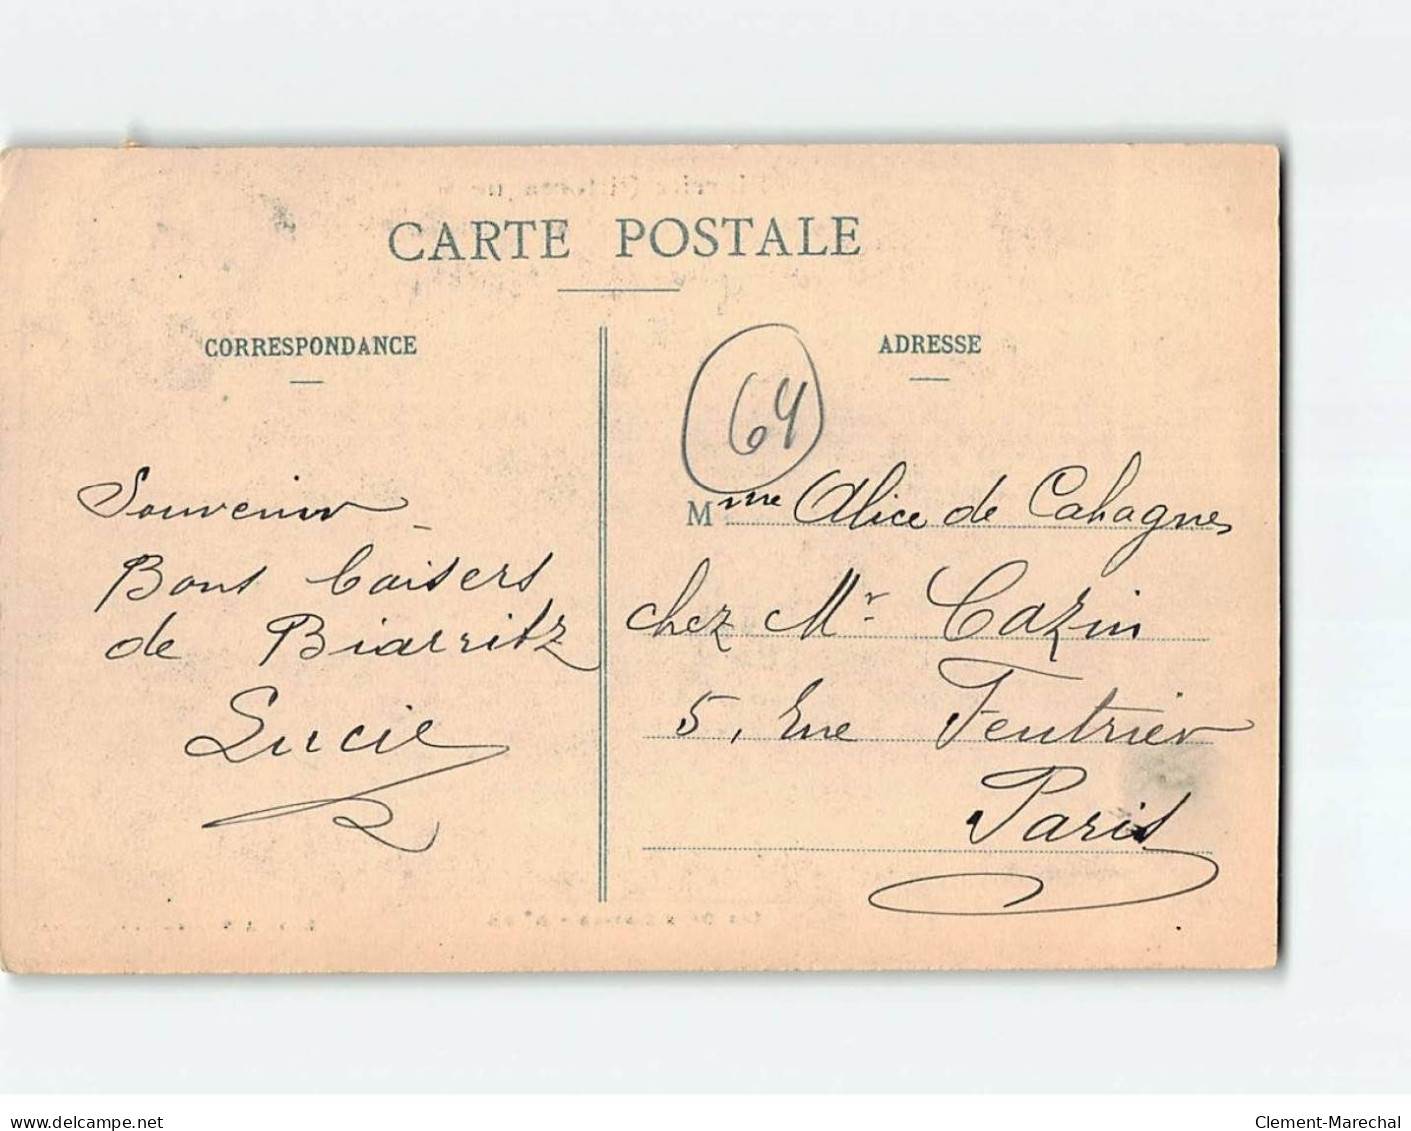 CARTE POSTALE
CORRESPONDANCE
ADRESSE
64
Souvenir
Bons baisers
de Biarritz
Lucie
Mme Alice de Cahagnes
chez Mr Cazin
5, Rue Feutrier
Paris
delcampe.net
Clement-Marechal